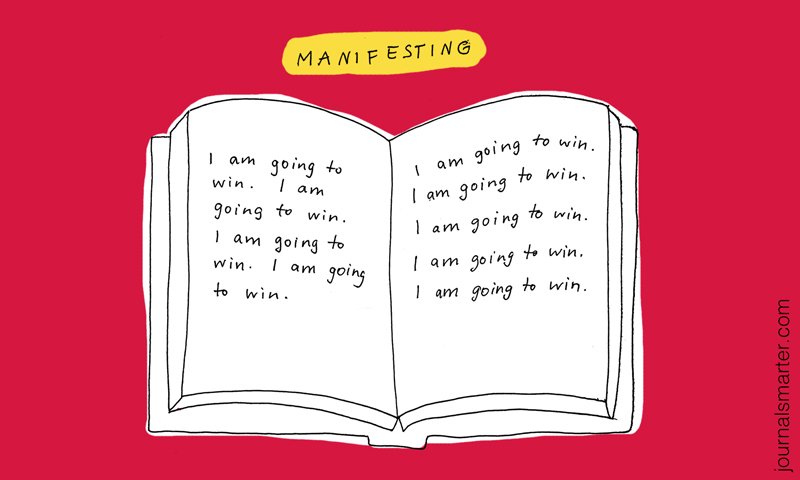 MANIFESTING
I am going to
win. I am
going to win.
I am going to
win. I am going
to win.
I am going to win.
I am going to win.
I am going to win.
I am going to win.
I am going to win.
journalsmarter.com